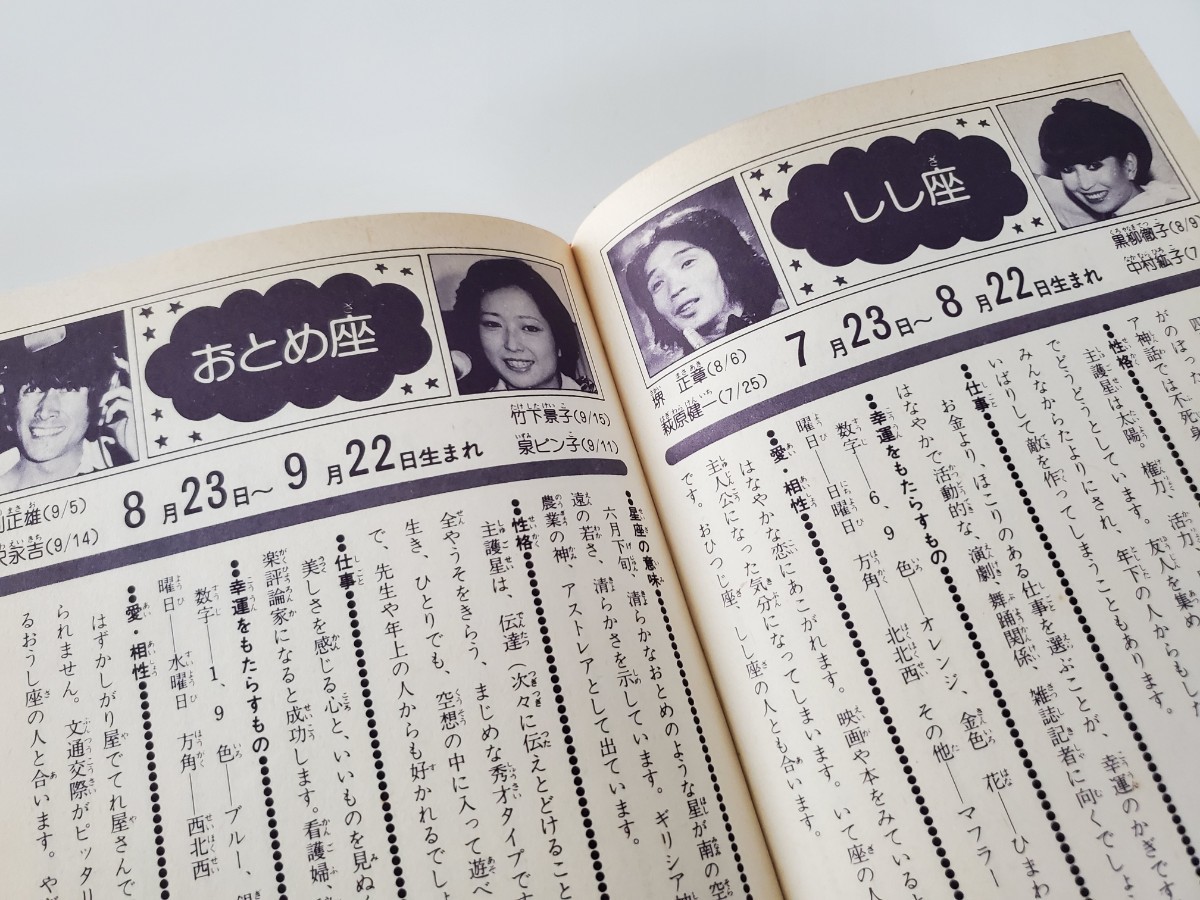 しし座
堺 正章(8/6)
萩原健一(7/25)
黒柳徹子(8/9
中村紘子(7
7月23日〜8月22日生まれ
がのは、
ア神話では不死身
●性格
主護星は太陽。権力、活力、
でどうどうとしています。友人を集め
みんなからたよりにされ、年下の人からもし
いばりして敵を作ってしまうこともあります。
●仕事
お金より、ほこりのある仕事を選ぶことが、幸運のかぎです
はなやかで活動的な、演劇、舞踊関係、雑誌記者に向くでしょ
●幸運をもたらすもの
数字——6、9 色——オレンジ、金色 花——ひまわ
曜日——日曜日 方角——北北西 その他——マフラー
●愛・相性
はなやかな恋にあこがれます。映画や本をみていると
主人公になった気分になってしまいます。いて座の人
です。おひつじ座、しし座の人とも合います。
おとめ座
正雄(9/5)
永吉(9/14)
竹下景子(9/15)
泉ピン子(9/11)
8月23日〜9月22日生まれ
●星座の意味
六月下旬、清らかなおとめのような星が南の空
遠の若さ、清らかさを示しています。ギリシア神
農業の神、アストレアとして出ています。
●性格
主護星は、伝達(次々に伝えとどけること
全やうそをきらう、まじめな秀才タイプです
生き、ひとりでも、空想の中に入って遊べ
で、先生や年上の人からも好かれるでしょ
●仕事
美しさを感じる心と、いいものを見ぬ
楽評論家になると成功します。看護婦、
●幸運をもたらすもの
数字——1、9 色——ブルー、銀
曜日——水曜日 方角——西北西
●愛・相性
はずかしがり屋でてれ屋さんで
られません。文通交際がピッタリ
るおうし座の人と合います。や